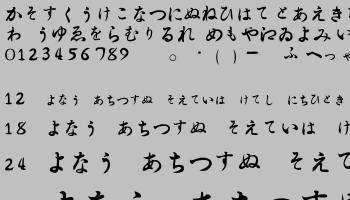 かそすくうけこなつにぬねひはてとあえき
わ うゆゑをらむりるれ めもやゐよみい
0123456789 。・()ー ふへっゃ
12 よなう あちつすぬ そえていは けてし にちひとき
18 よなう あちつすぬ そえていは け
24 よなう あちつすぬ そえて